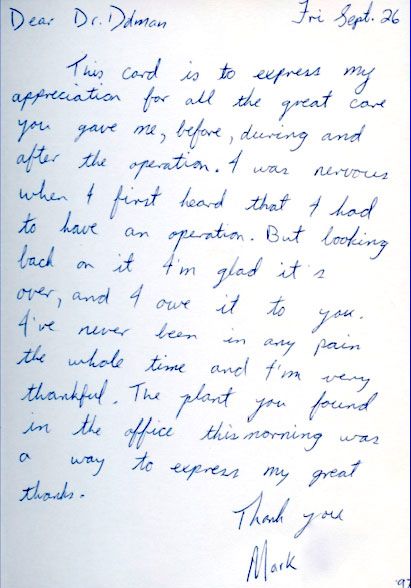 Dear Dr. Ddman Fri Sept. 26
This card is to express my
appreciation for all the great care
you gave me, before, during and
after the operation. I was nervous
when I first heard that I had
to have an operation. But looking
back on it I'm glad it's
over, and I owe it to you.
I've never been in any pain
the whole time and I'm very
thankful. The plant you found
in the office this morning was
a way to express my great
thanks.
Thank you
Mark
'97